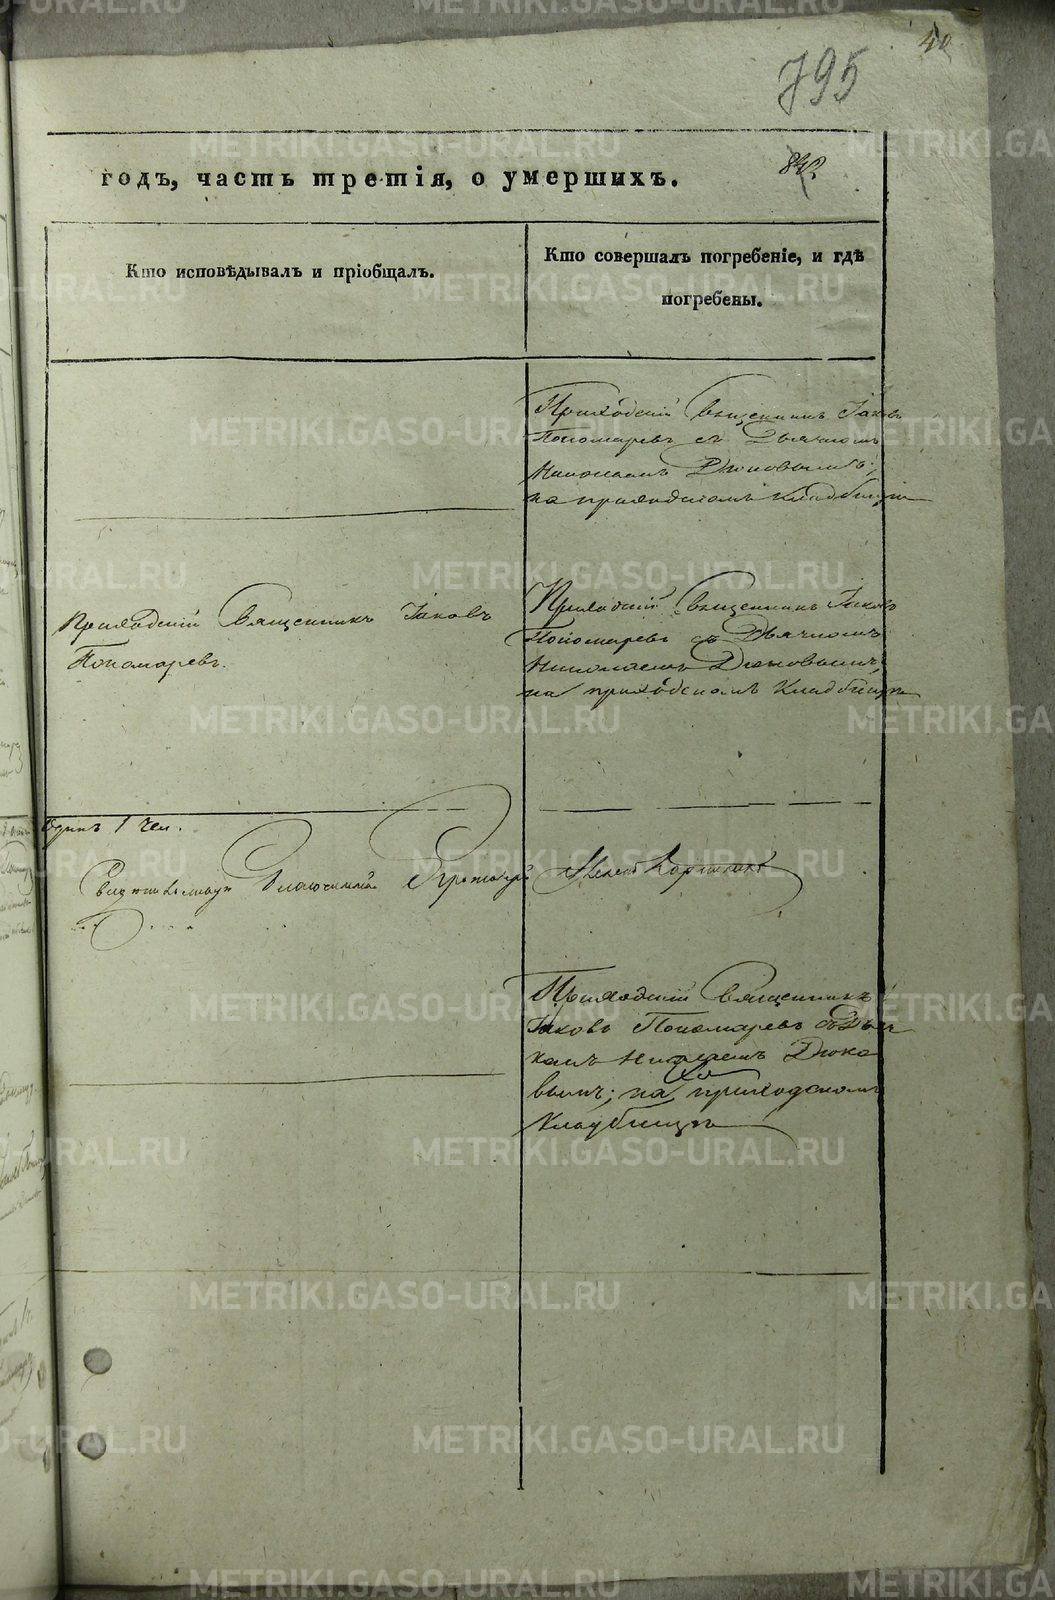 40
795
годъ, часть третія, о умершихъ.
840.
Кто исповѣдывалъ и пріобщалъ.
Кто совершалъ погребеніе, и гдѣ
погребены.
Приходскій Священникъ Іаковъ
Пономаревъ съ Дьячкомъ
Николаемъ Дюковымъ;
на приходскомъ кладбищѣ
Приходскій Священникъ Іаковъ
Пономаревъ.
Приходскій Священникъ Іаковъ
Пономаревъ съ Дьячкомъ
Николаемъ Дюковымъ;
на приходскомъ кладбищѣ
Одинъ 1 чел.
Свидетельствовалъ Благочинный
Приходскій Священникъ
Іаковъ Пономаревъ съ Дьяч
комъ Николаемъ Дюко
вымъ; на приходскомъ
кладбищѣ
METRIKI.GASO-URAL.RU